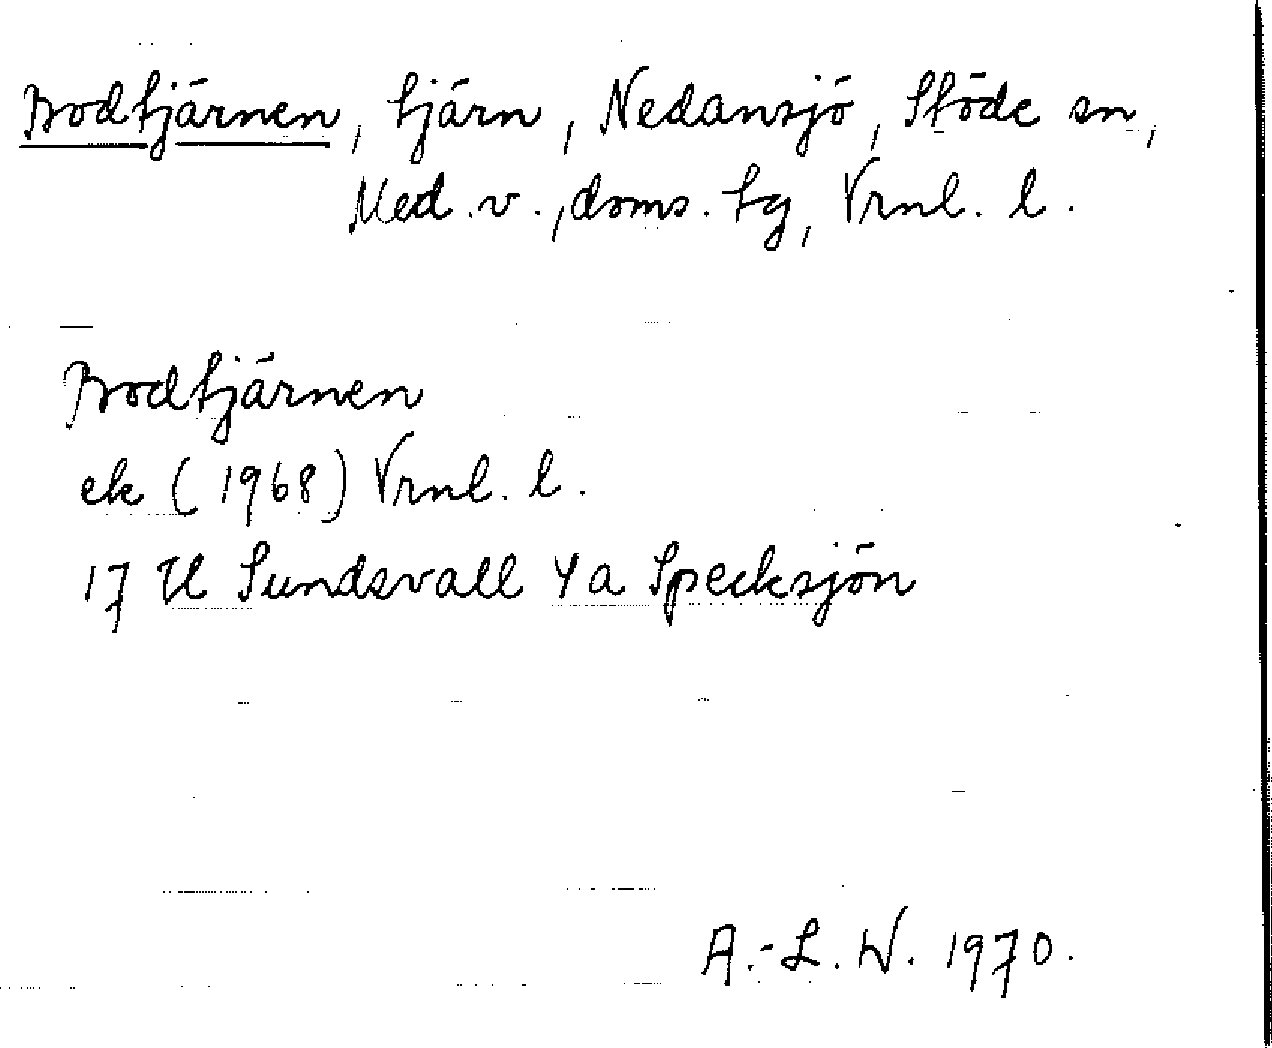 Bodtjärnen, tjärn, Nedansjö, Stöde sn,
Med. v., doms. tg, Vrnl. l.
Bodtjärnen
ek (1968) Vrnl. l.
17 H Sundsvall 4 a Specksjön
A.-L. W. 1970.